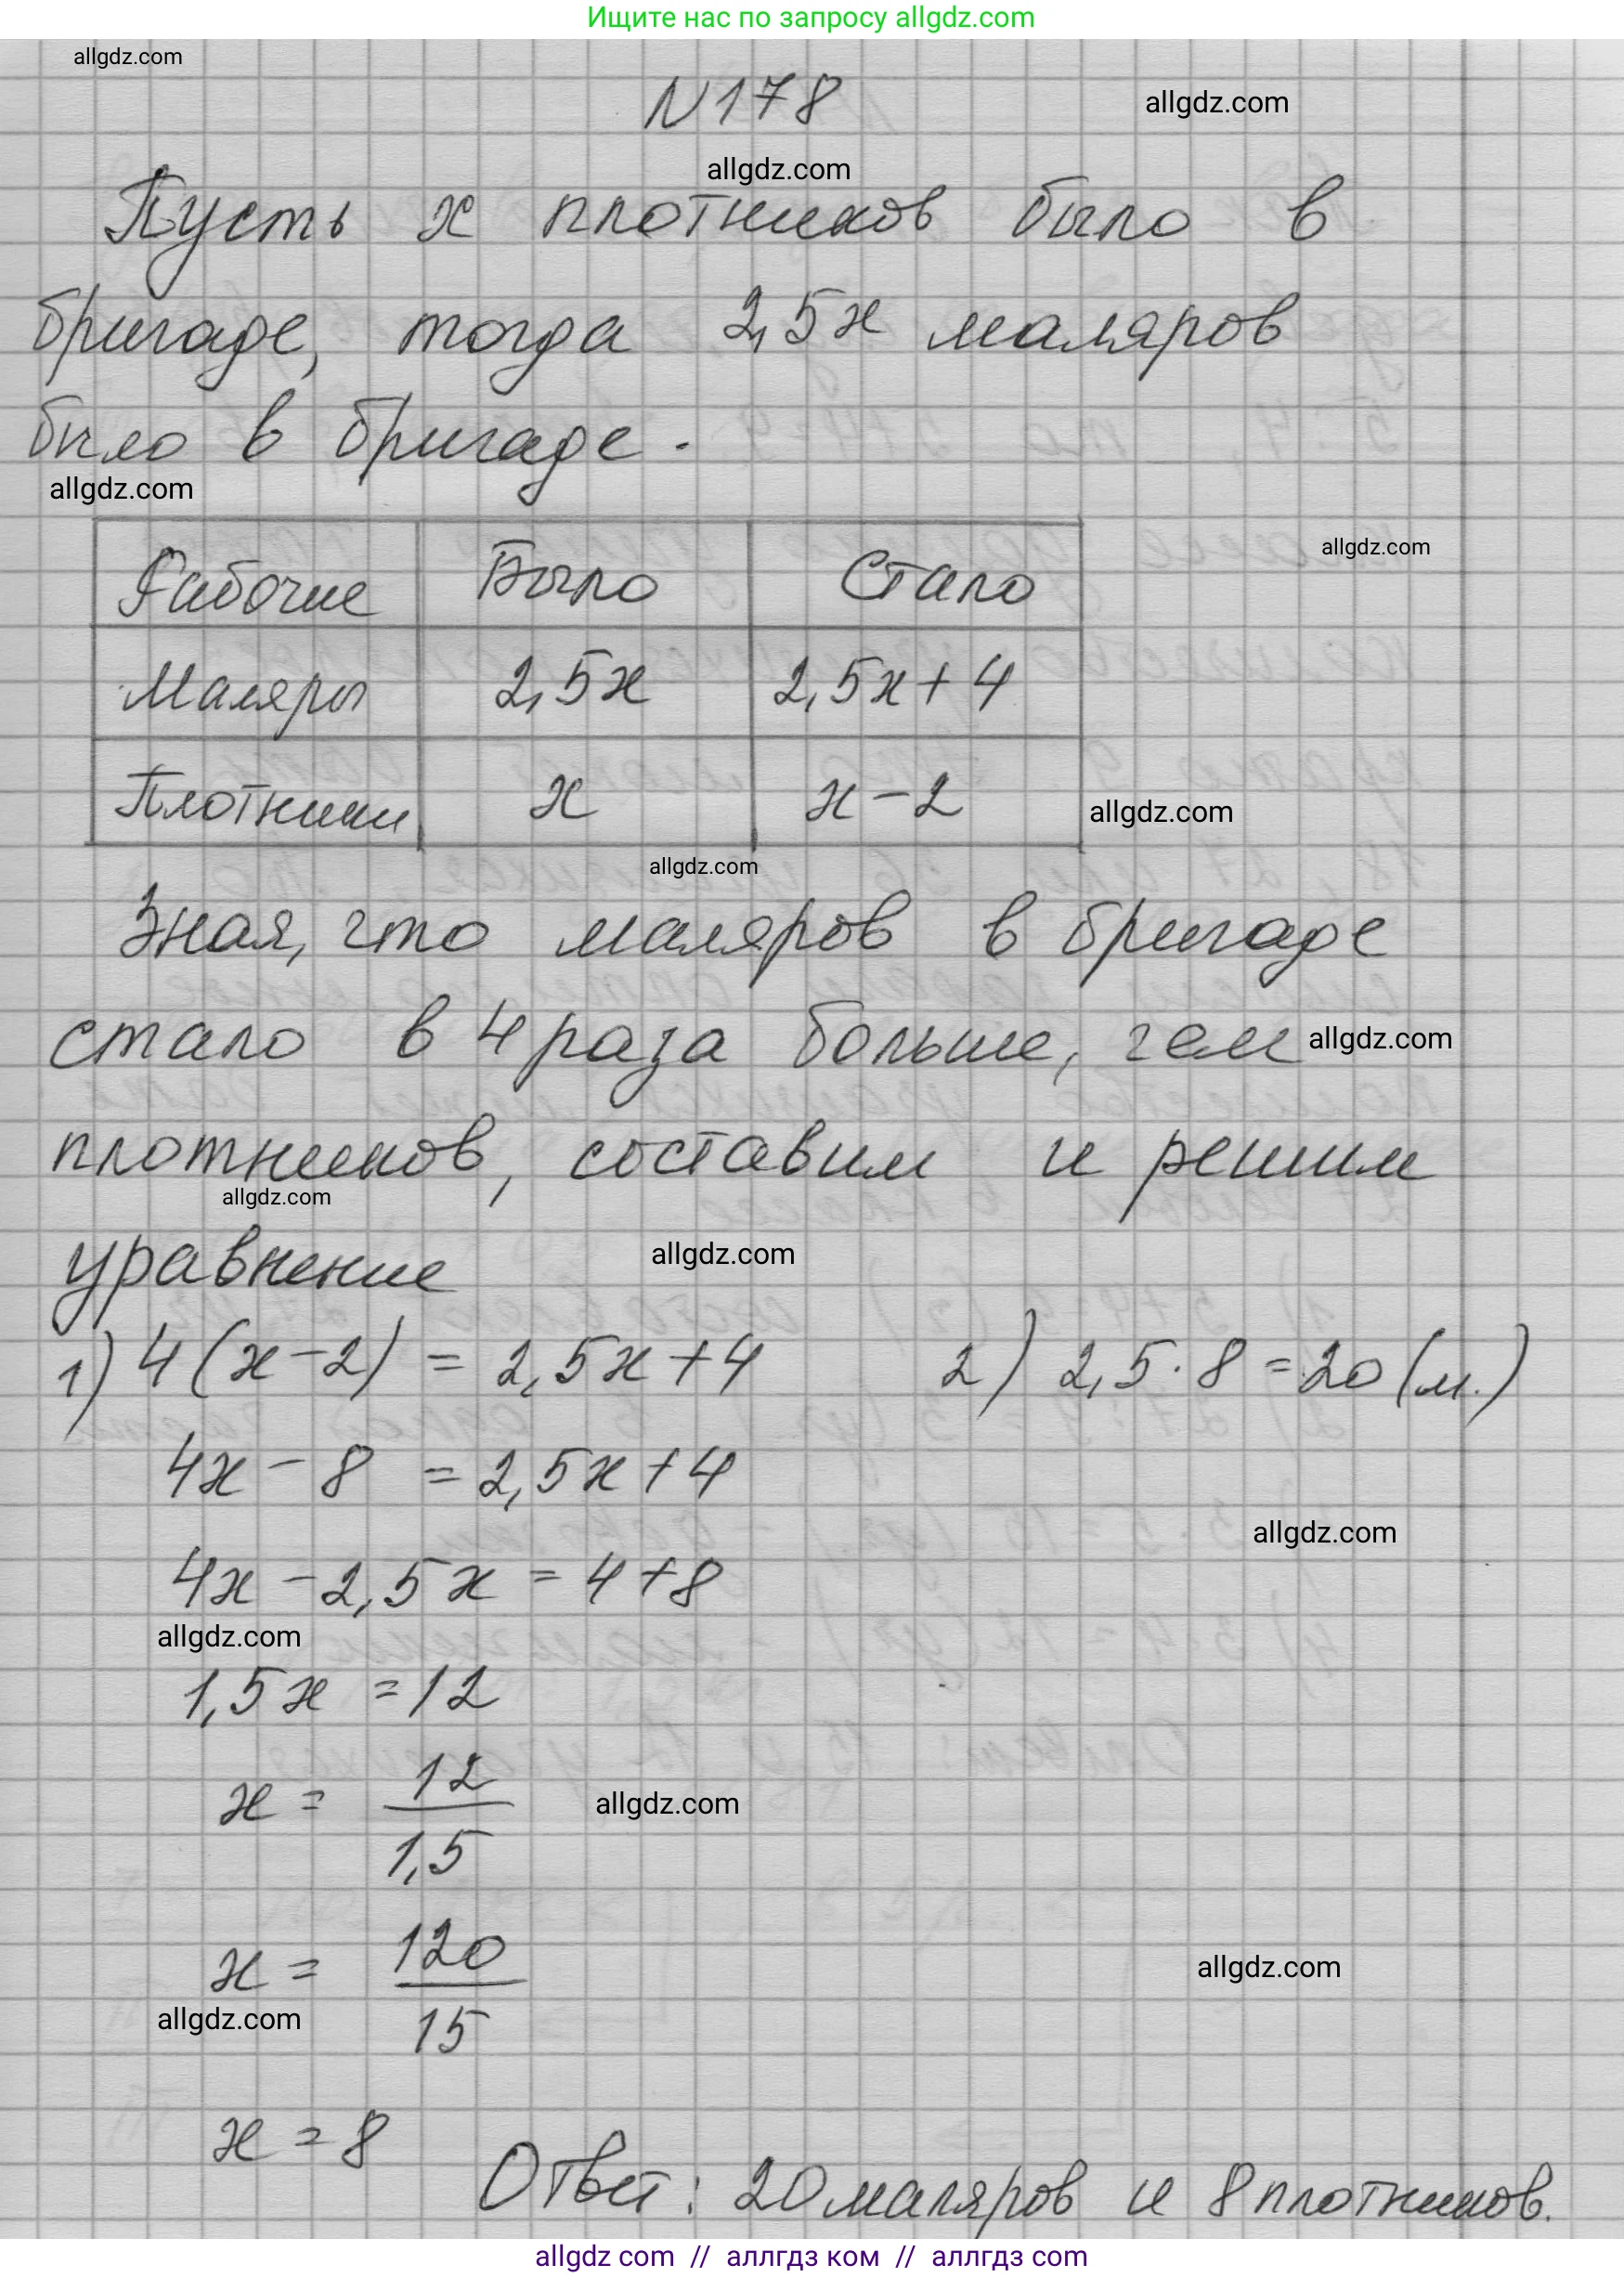 Ищите нас по запросу allgdz.com
allgdz.com
N178
allgdz.com
allgdz.com
Пусть x плотников было в
бригаде, тогда 2,5x маляров
было в бригаде.
allgdz.com
Рабочие Было Стало
allgdz.com
Маляры 2,5x 2,5x+4
Плотники x x-2
allgdz.com
allgdz.com
Зная, что маляров в бригаде
стало в 4 раза больше, чем
allgdz.com
плотников, составим и решим
allgdz.com
уравнение
allgdz.com
1) 4(x-2) = 2,5x+4 2) 2,5·8=20(м.)
4x-8 = 2,5x+4
allgdz.com
4x-2,5x=4+8
allgdz.com
1,5x=12
x = 12/1,5
allgdz.com
x = 120/15
allgdz.com
allgdz.com
x = 8
Ответ: 20 маляров и 8 плотников.
allgdz com // аллгдз ком // аллгдз com